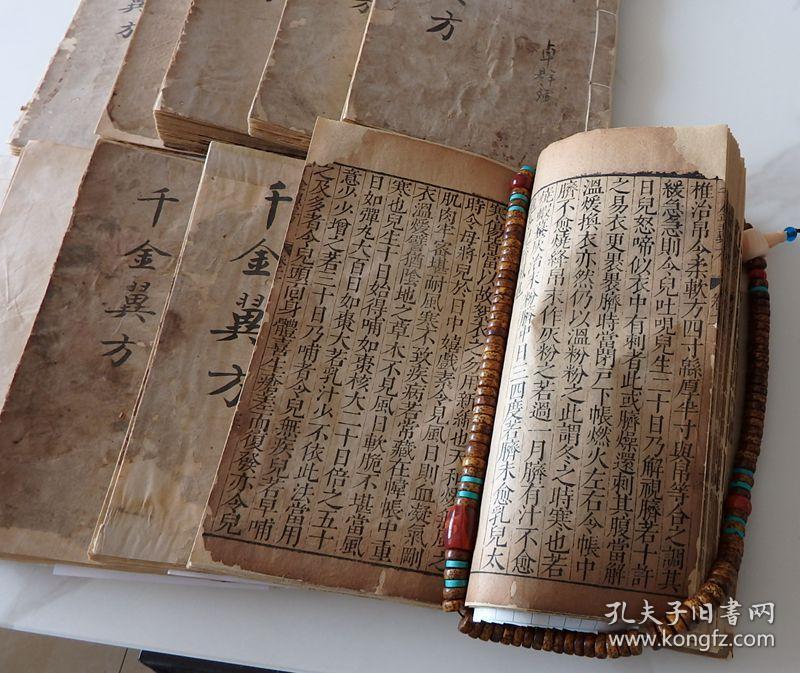 翼方
方
方
方
卓群
千金翼方
千金翼方
椎治帛令柔軟方四寸緜厚半寸與帛等合之調其
緩急急則令兒吐哯兒生二十日乃解視臍若十許
日兒怒啼似衣中有刺者此或臍燥還刺其腹當解
之易衣更裹裹臍時當閉戶下帳燃火左右令帳中
溫煖換衣亦然仍以溫粉粉之此謂冬之時寒也若
臍不愈燒絳帛末作灰粉之若過一月臍有汁不愈
灰治末粉臍中日三四度若臍未愈乳兒太
當以故絮衣之勿用新綿也天
時令母將兒於日中嬉戲素令見風日則血凝氣剛
肌肉牢密堪耐風寒不致疾病若常藏在幃帳中重
衣溫煖譬猶陰地之草木不見風日軟脆不堪當風
寒也兒生十日始得哺如棗核大二十日倍之五十
日如彈丸大百日如棗大若乳汁少不依此法當用
意少少增之若三十日乃哺者令兒無疾兒若早哺
之及多者令兒頭面身體喜生瘡差而復發亦令兒
孔夫子旧書网
www.kongfz.com